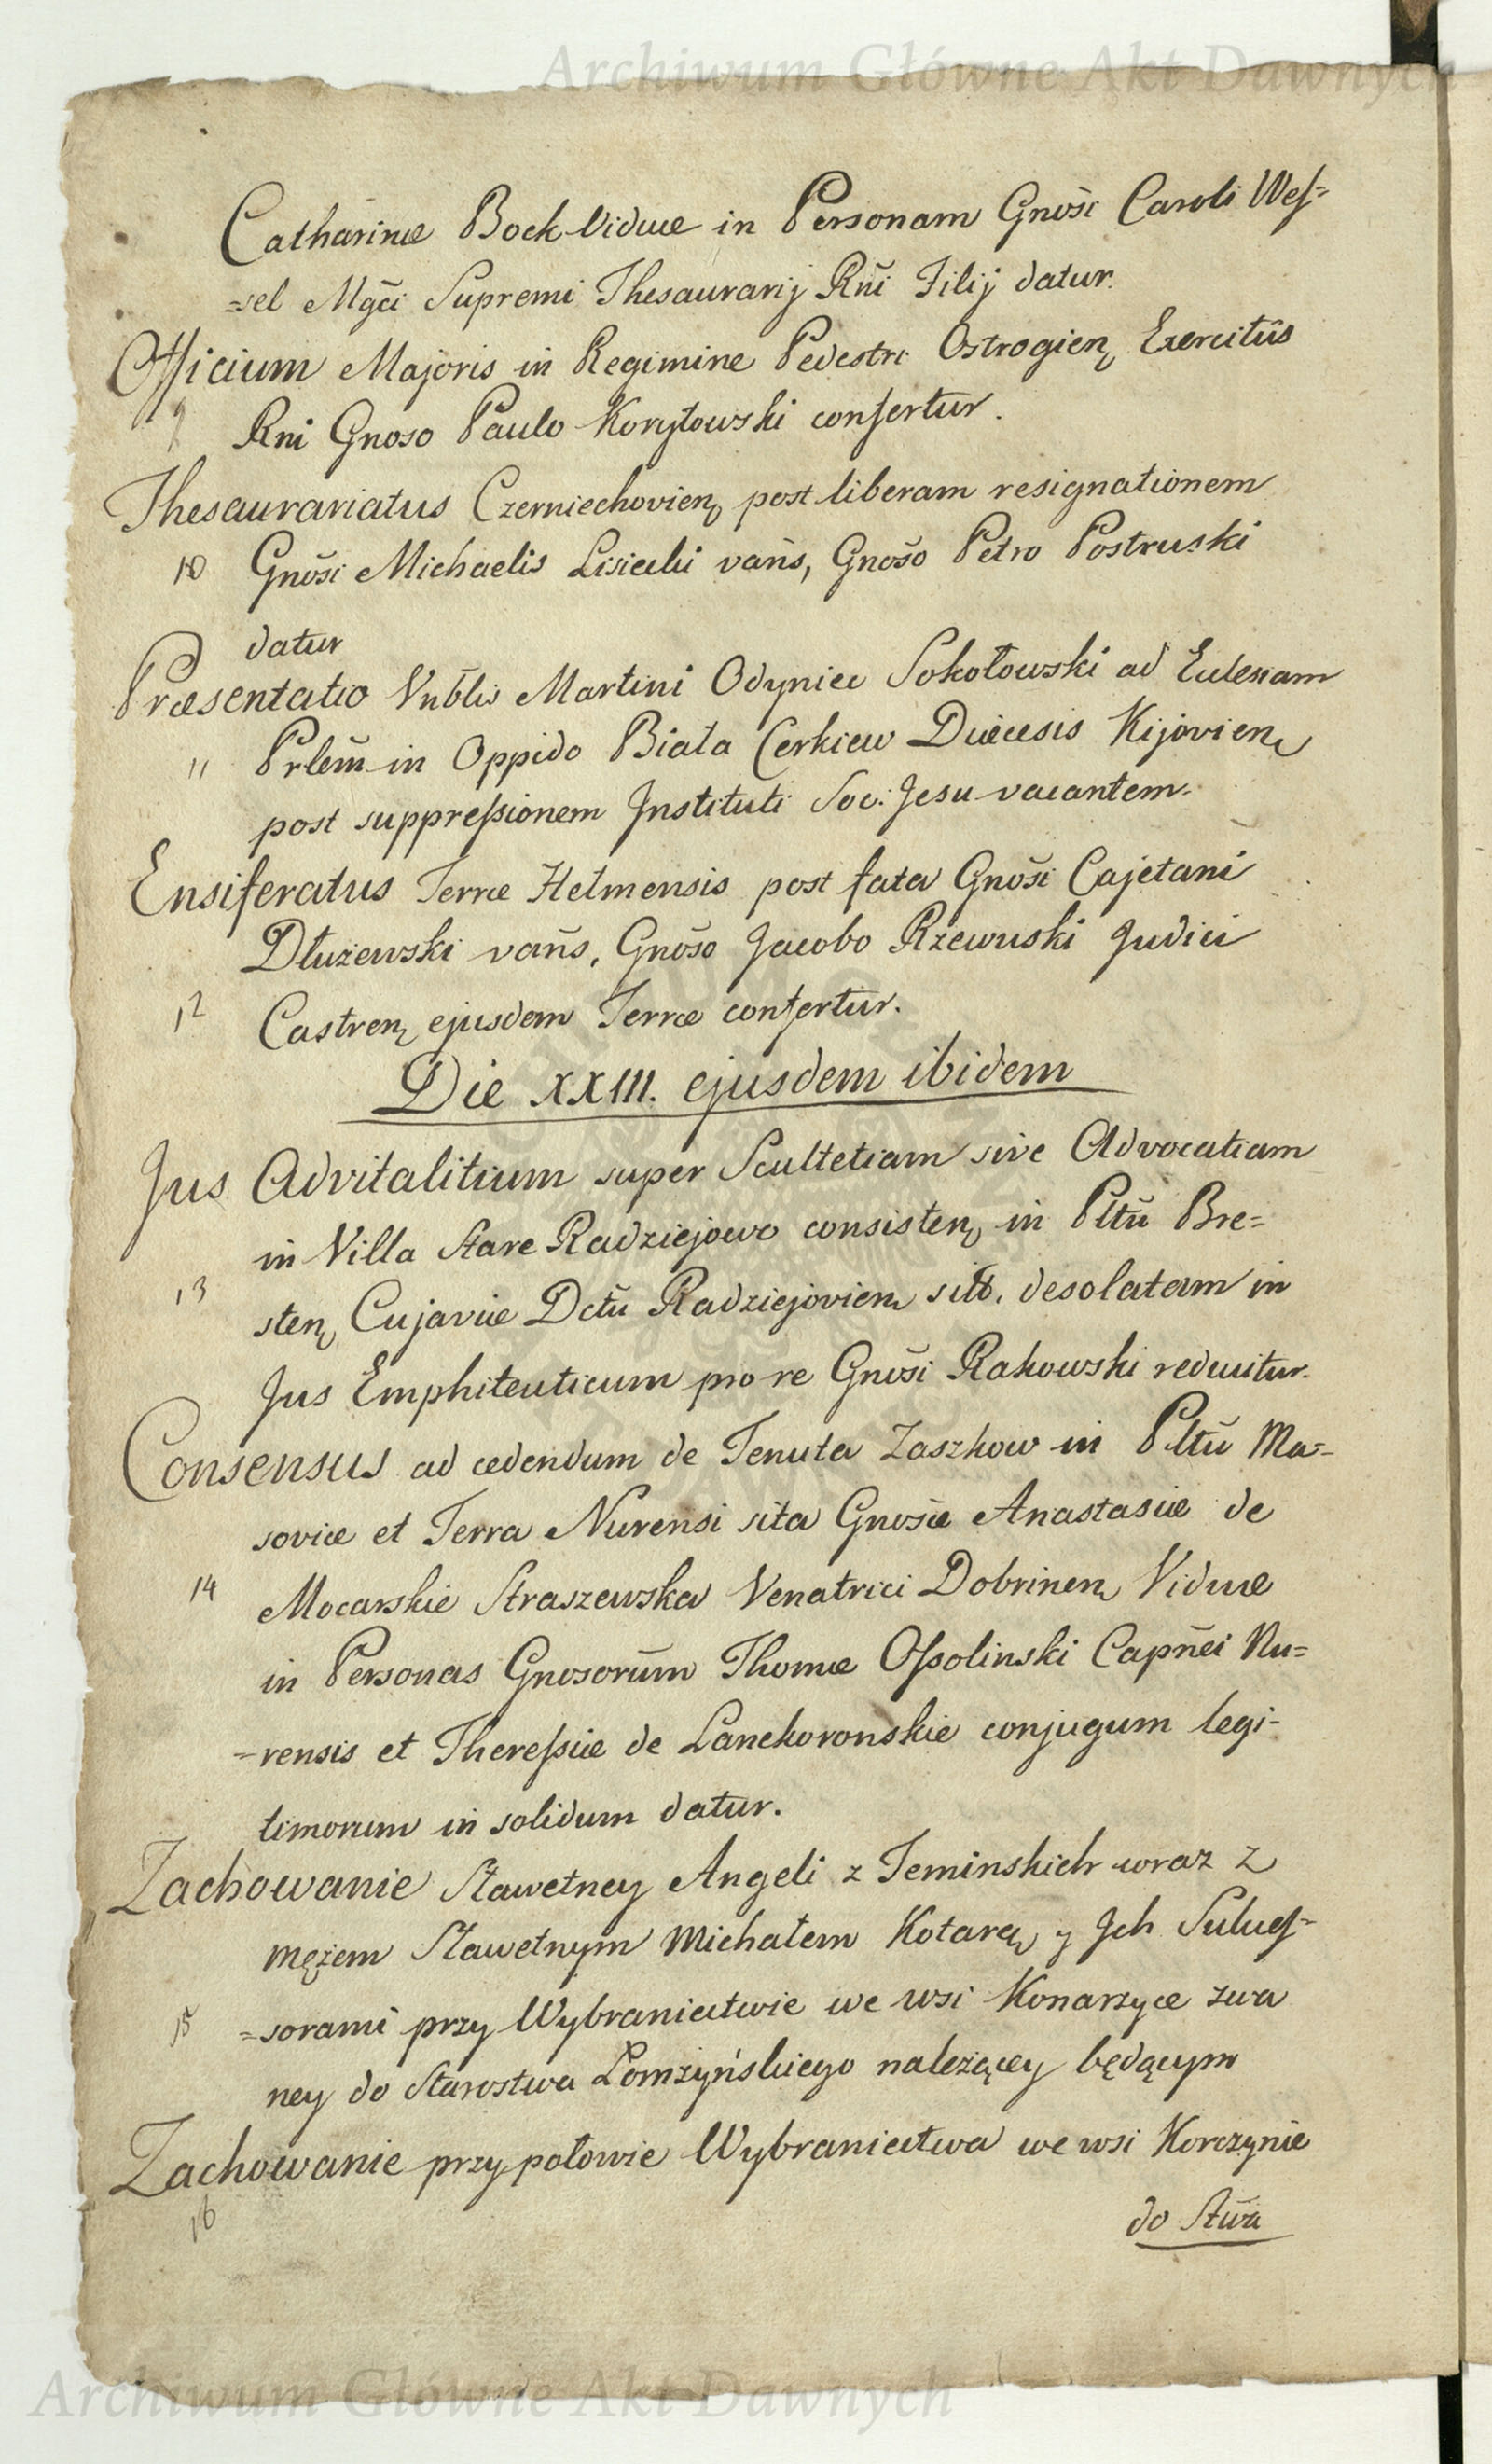 Archiwum Główne Akt Dawnych
Catharinæ Bock Viduæ in Personam Gnosi Caroli Wes=
=sel Mgci Supremi Thesaurarij Rni Filij datur.
Officium Majoris in Regimine Pedestri Ostrogien, Exercitus
9 Rni Gnoso Paulo Korytowski confertur.
Thesaurariatus Czerniechovien, post liberam resignationem
10 Gnosi Michaelis Lisiecki vans, Gnoso Petro Postruski
datur
Præsentatio Vnblis Martini Odyniec Sokołowski ad Ecclesiam
11 Prlem in Oppido Biała Cerkiew Diæcesis Kijovien,
post suppressionem Instituti Soc: Jesu vacantem.
Ensiferatus Terræ Helmensis post fata Gnosi Cajetani
Dłużewski vans, Gnoso Jacobo Rzewuski Judici
12 Castren, ejusdem Terræ confertur.
Die XXIII. ejusdem ibidem
Jus Advitalitium super Scultetiam sive Advocatiam
in Villa Stare Radziejowo consisten, in Pltu Bre=
13 sten, Cujaviæ Dctu Radziejovien, sitt. desolatam in
Jus Emphiteuticum pro re Gnosi Rakowski reducitur.
Consensus ad cedendum de Tenuta Zaszkow in Pltu Ma=
soviæ et Terra Nurensi sita Gnosæ Anastasiæ de
14 Mocarskie Straszewska Venatrici Dobrinen, Viduæ
in Personas Gnosorum Thomæ Ossolinski Capnei Nu=
=rensis et Theressiæ de Lanckoronskie conjugum legi=
timorum in solidum datur.
Zachowanie Sławetney Angeli z Teminskich wraz z
mężem Sławetnym Michałem Kotarą y Ich Sukces=
15 =sorami przy Wybraniectwie we wsi Konarzyce zwa
ney do Starostwa Łomżyńskiego należącey będącym
Zachowanie przy połowie Wybraniectwa we wsi Korczynie
16
do Stwa
Archiwum Główne Akt Dawnych